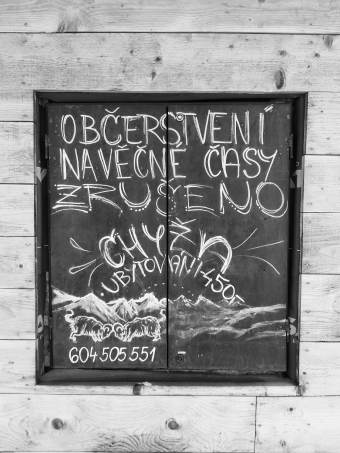 OBČERSTVENÍ
NAVĚČNÉ ČASY
ZRUŠENO
CHYŽŇ
UBYTOVÁNÍ 450,-
604 505 551